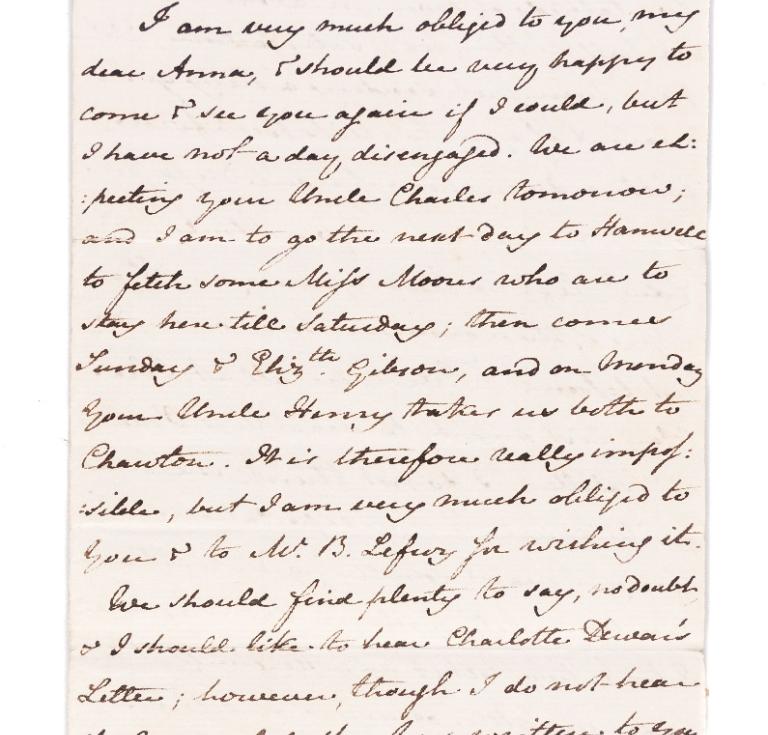 I am very much obliged to you, my
dear Anna, & should be very happy to
come & see you again if I could, but
I have not a day disengaged. We are ex:
:pecting your Uncle Charles tomorrow;
and I am to go the next day to Hanwell
to fetch some Miss Moores who are to
stay here till Saturday; then comes
Sunday & Elizth. Gibson, and on Monday
Your Uncle Henry takes us both to
Chawton. It is therefore really impos:
:sible, but I am very much obliged to
You & to Mr. B. Lefroy for wishing it.
We should find plenty to say, no doubt,
& I should like to hear Charlotte Dewar's
Letter; however, though I do not hear
written to you